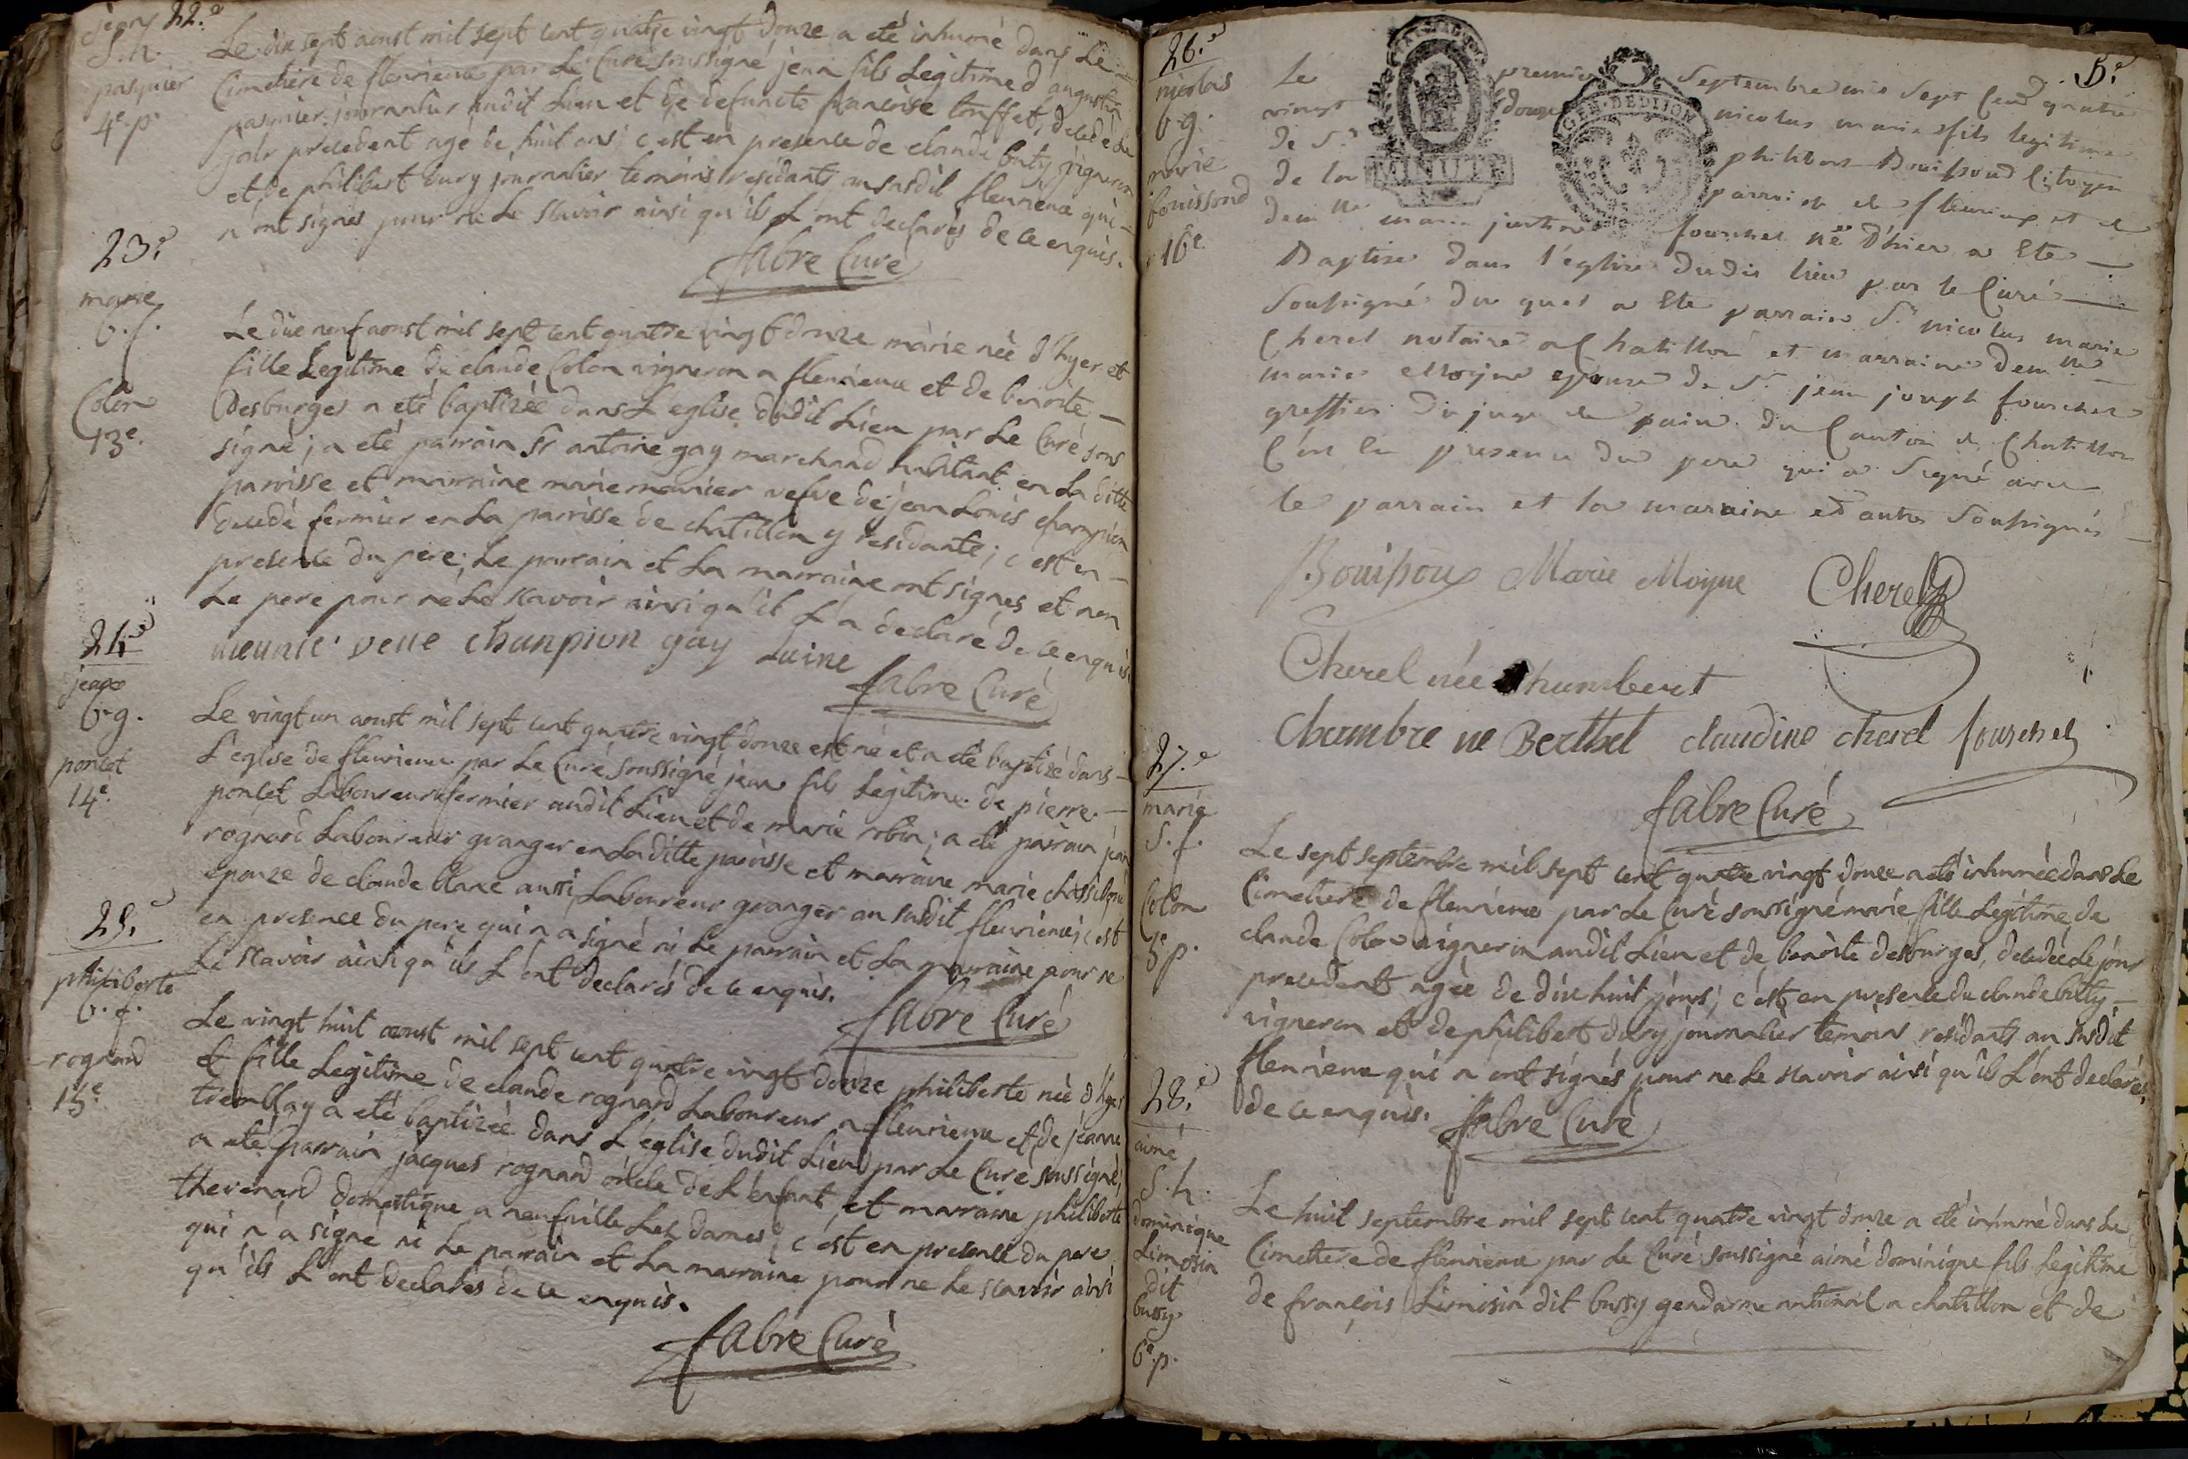 jean 22.e
S. h.
pasquier
4e. p.
Le dix sept aoust mil sept cent quatre vingt douze a eté inhumé dans Le
Cimetiere de fleurieux par Le Curé soussigné jean fils Legitime d'augustin
pasquier journalier audit Lieu et de defuncte francoise touffet, decedé Le
jour precedent agé de huit ans; c'est en presence de claude buty vigneron
et de philibert dury journalier temoins residants au susdit fleurieux qui
n'ont signés pour ne Le scavoir ainsi qu'ils L'ont declarés de ce enquis.
fabre Curé
23.e
marie
b. f.
Colon
13e.
Le dix neuf aoust mil sept cent quatre vingt douze marie née d'hyer et
fille Legitime de claude Colon vigneron a fleurieux et de benoite
Desburges a eté baptizée dans L'eglise dudit Lieu par Le Curé sous
signé; a eté parrain Sr antoine gay marchand habitant en La ditte
paroisse et marraine marie meunier vefve de jean Louis champion
decedé fermier en La parrisse de chatillon y residante; c'est en
presence du pere; Le parrain et La marraine ont signés et non
Le pere pour ne Le scavoir ainsi qu'il L'a declaré de ce enquis.
meunie veue chanpion gay Luine
fabre Curé
24.e
jean
b. g.
poncet
14e.
Le vingt un aoust mil sept cent quatre vingt douze est né et a eté baptizé dans
L'eglise de fleurieux par Le Curé soussigné jean fils Legitime de pierre
poncet Laboureur fermier audit Lieu et de marie robin; a eté parrain jean
rognard Laboureur granger en La ditte paroisse et marraine marie
epouze de claude blanc aussi Laboureur granger au susdit fleurieux; c'est
en presence du pere qui n'a signé ni Le parrain et La marraine pour ne
Le scavoir ainsi qu'ils L'ont declarés de ce enquis.
fabre Curé
25.e
philiberte
b. f.
rognard
15e.
Le vingt huit aoust mil sept cent quatre vingt douze philiberte née d'hyer
et fille Legitime de claude rognard Laboureur a fleurieux et de jeanne
tremblay a eté baptizée dans L'eglise dudit Lieu par Le Curé soussigné;
a eté parrain jacques rognard oncle de L'enfant, et marraine philiberte
thevenard domestique a neufville Les dames; c'est en presence du pere
qui n'a signé ni Le parrain et La marraine pour ne Le scavoir ainsi
qu'ils L'ont declarés de ce enquis.
fabre Curé
5.e
26.e
nicolas
b. g.
marie
bouissoud
16e.
MINUTE
GEN. DE DIJON
Le premier Septembre mil Sept Cent quatre
vingt douze nicolas marie fils legitime
de Sr philibert Bouissoud Citoyen
de la parroisse de fleurieux et de
demlle marie justine fourchet né d'hier a Eté
Baptisé dans l'église dudit lieu par le Curé
Soussigné du quel a Eté parrain Sr nicolas marie
Cherel notaire a Chatillon et marraine demlle
marie Moyne epouse de Sr jean joseph fourchet
greffier du juge de paix du Canton de Chatillon
C'est En presence du pere qui a Signé avec
le parrain et la maraine et autres Soussignés
Bouissou Marie Moyne Cherel
Cherel née humbert
Chambre ne Berthet claudine cherel fourchet
fabre Curé
27.e
marie
S. f.
Colon
5e. p.
Le sept septembre mil sept cent quatre vingt douze a eté inhumée dans Le
Cimetiere de fleurieux par Le Curé soussigné marie fille Legitime de
claude Colon vigneron audit Lieu et de benoite desburges, decedée Le jour
precedent agée de dix huit jours; c'est en presence de claude butty
vigneron et de philibert dury journalier temoins residants au susdit
fleurieux qui n'ont signés pour ne Le scavoir ainsi qu'ils L'ont declarés
de ce enquis. fabre Curé
28.e
aimé
S. h.
dominique
Limosin
dit
bussy
6e. p.
Le huit septembre mil sept cent quatre vingt douze a eté inhumé dans Le
Cimetiere de fleurieux par Le Curé soussigné aimé dominique fils Legitime
de françois Limosin dit bussy gendarme national a chatillon et de